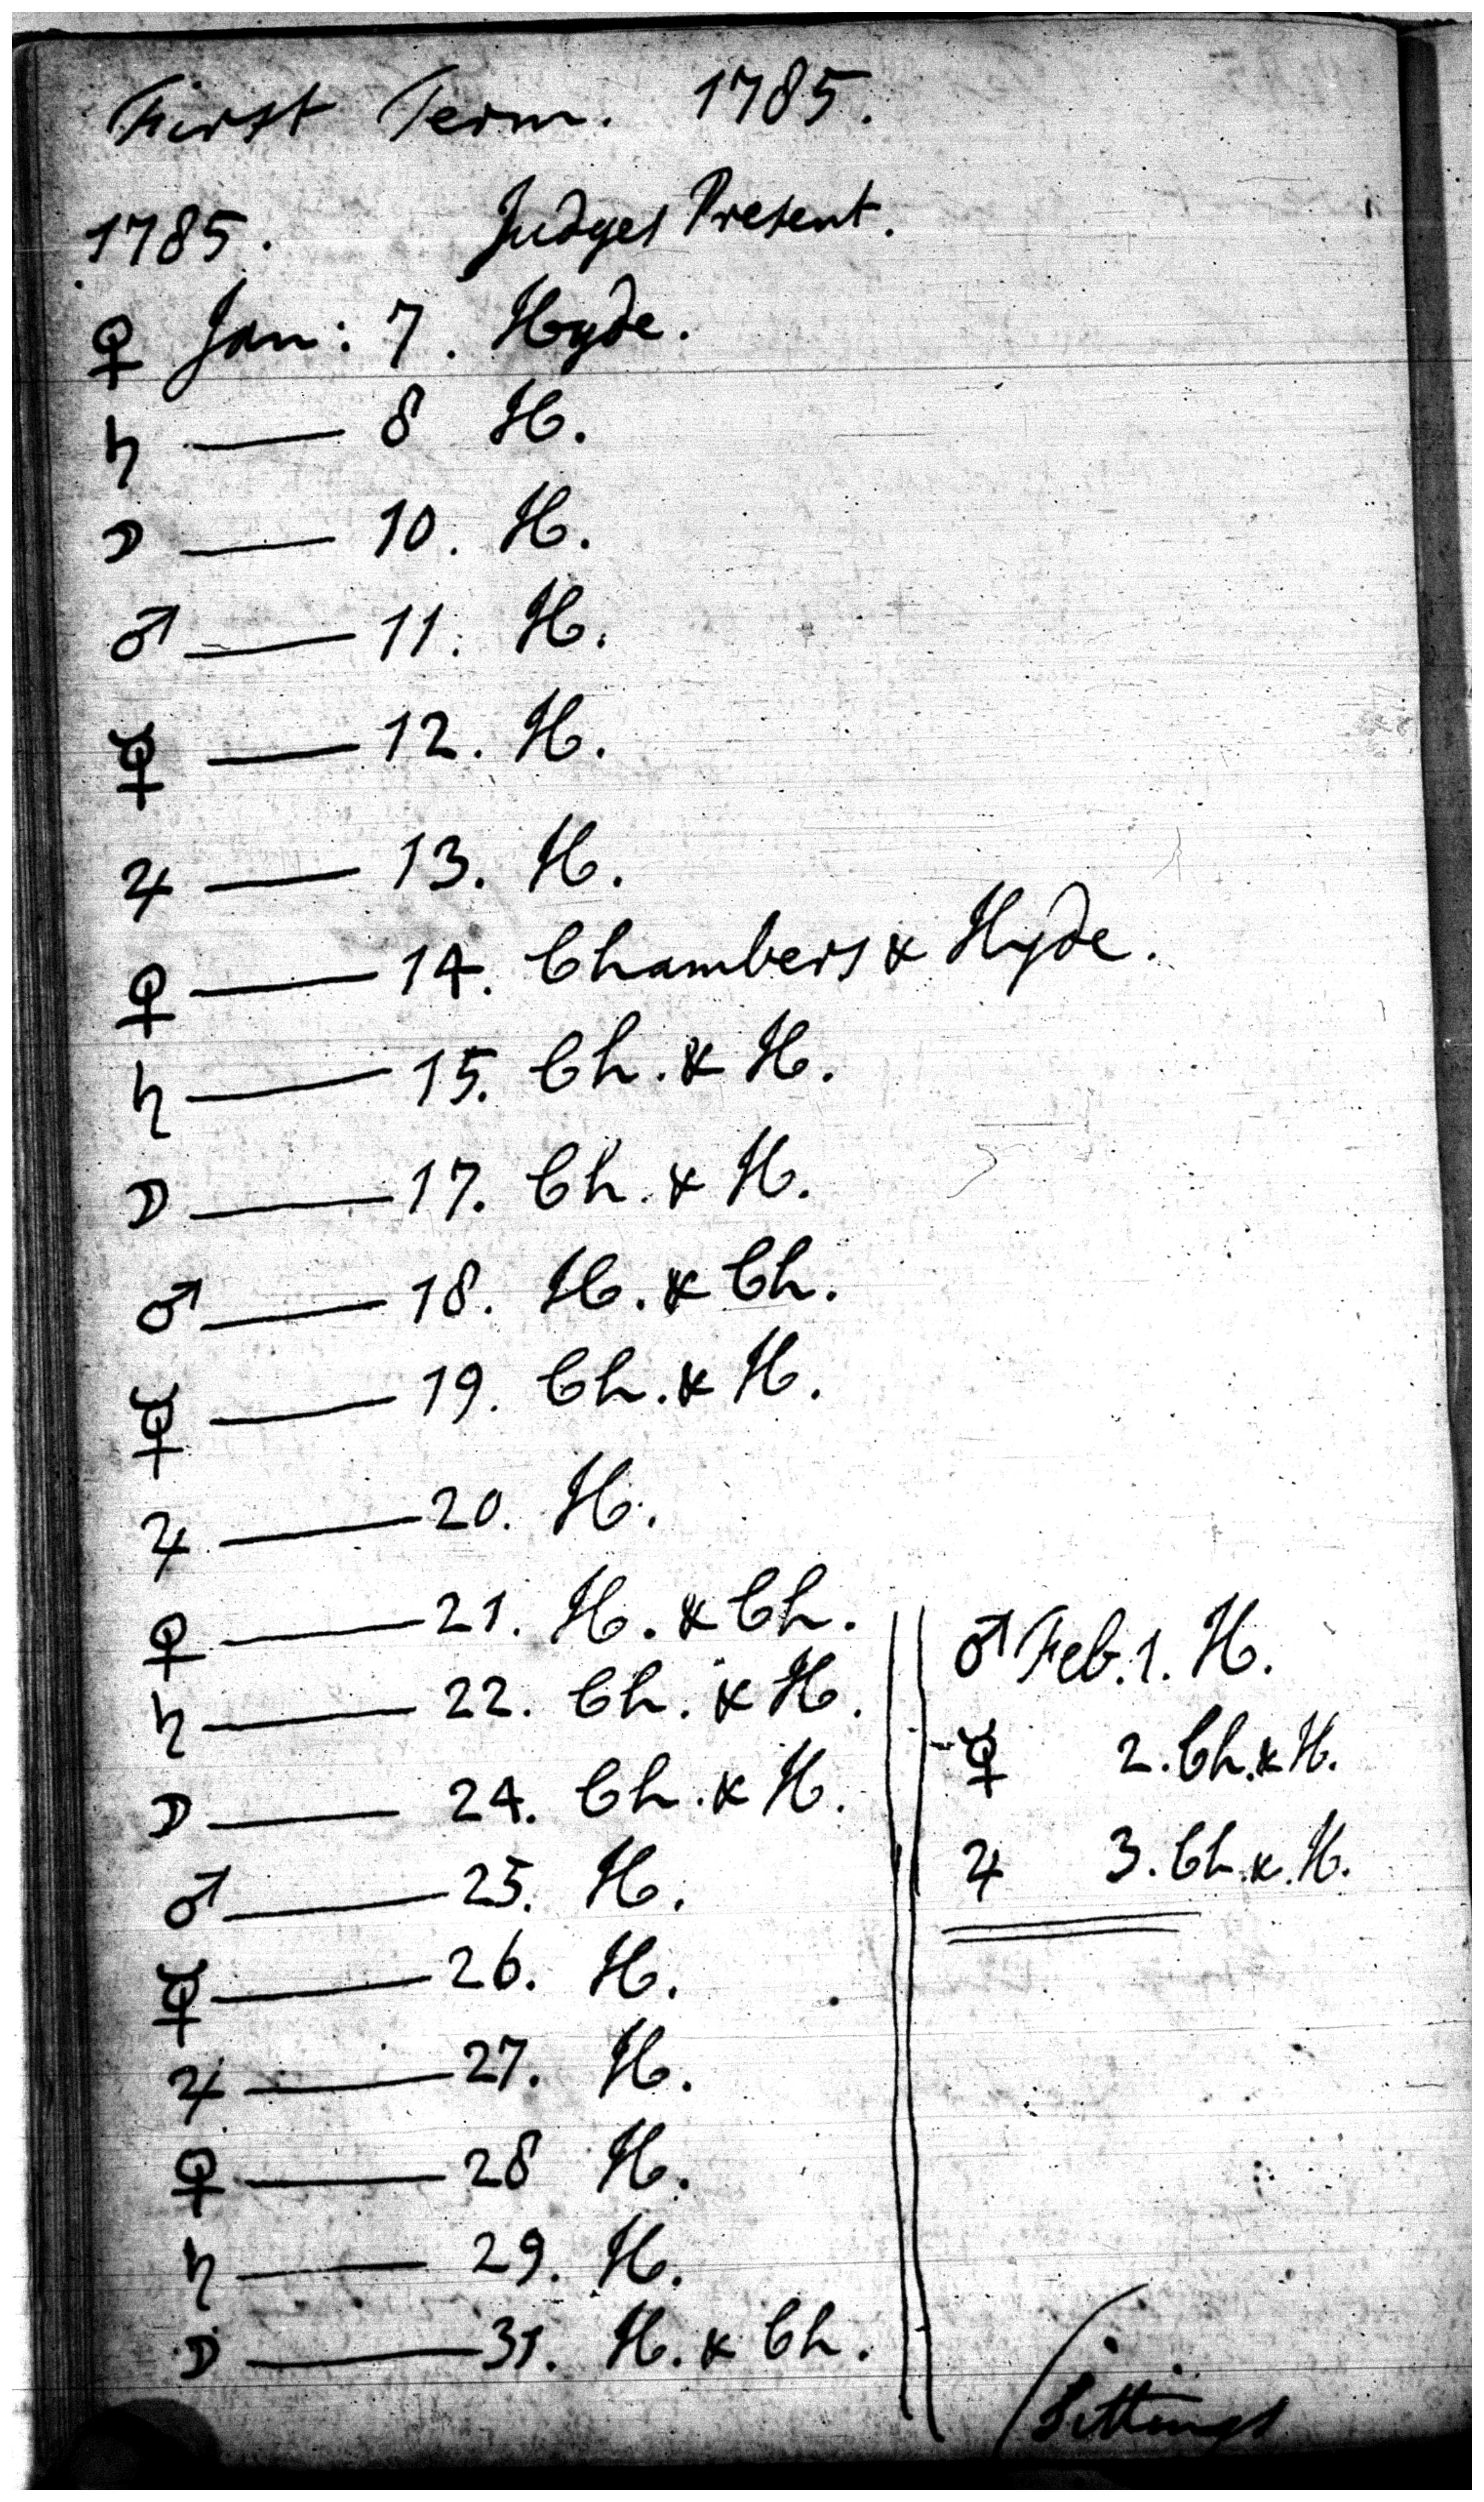 First Term. 1785.
1785. Judges Present.
♀ Jan: 7. Hyde.
♄ — 8 H.
☽ — 10. H.
♂ — 11. H.
☿ — 12. H.
♃ — 13. H.
♀ — 14. Chambers & Hyde.
♄ — 15. Ch. & H.
☽ — 17. Ch. & H.
♂ — 18. H. & Ch.
☿ — 19. Ch. & H.
♃ — 20. H.
♀ — 21. H. & Ch.
♄ — 22. Ch. & H.
☽ — 24. Ch. & H.
♂ — 25. H.
☿ — 26. H.
♃ — 27. H.
♀ — 28 H.
♄ — 29. H.
☽ — 31. H. & Ch.
♂ Feb. 1. H.
☿ 2. Ch. & H.
♃ 3. Ch. & H.
Sittings